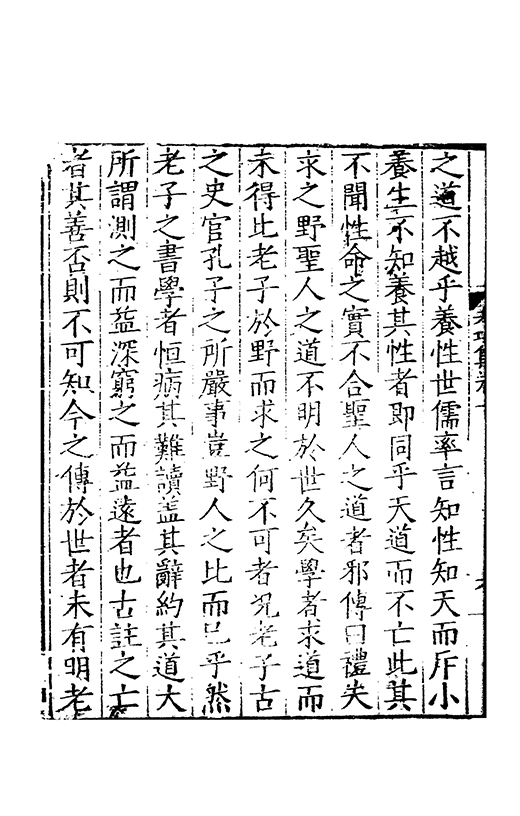 之道不越乎養性世儒率言知性知天而斥小
養生不知養其性者即同乎天道而不亡此其
不聞性命之實不合聖人之道者邪傳曰禮失
求之野聖人之道不明於世久矣學者求道而
未得比老子於野而求之何不可者况老子古
之史官孔子之所嚴事豈野人之比而已乎然
老子之書學者恒病其難讀蓋其辭約其道大
所謂測之而益深窮之而益遠者也古註之亡
者其善否則不可知今之傳於世者未有明老